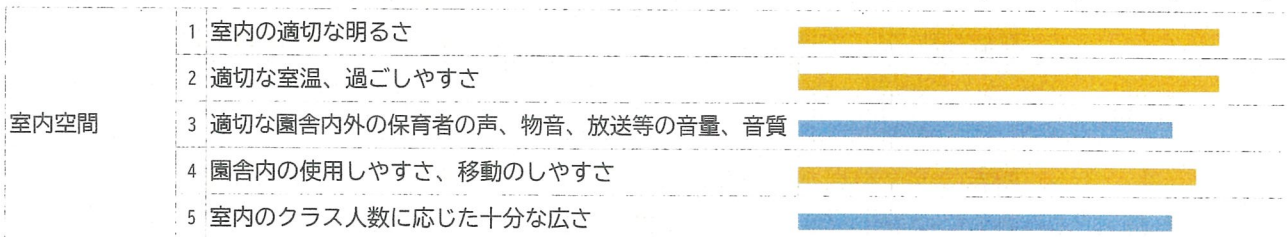 1 室内の適切な明るさ
2 適切な室温、過ごしやすさ
室内空間
3 適切な園舎内外の保育者の声、物音、放送等の音量、音質
4 園舎内の使用しやすさ、移動のしやすさ
5 室内のクラス人数に応じた十分な広さ